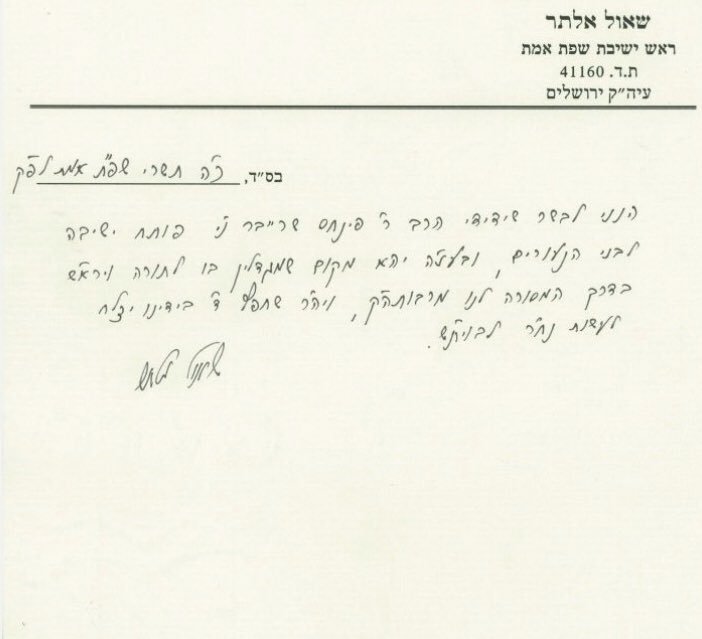 שאול אלתר
ראש ישיבת שפת אמת
ת.ד. 41160
עיה״ק ירושלים
בס״ד, כ״ה תשרי שפ״ת אמת לפ״ק
הנני לבשר שידידי הרב ר' פינחס שרייבר ני' פותח ישיבה
לבני הנעורים, ובעז״ה יהא מקום שמגדלין בו לתורה ויר״ש
בדרך המסורה לנו מרבוה״ק, ויה״ר שחפץ ד' בידינו יצלח
לעשות נח״ר לבוית״ש.
שאול